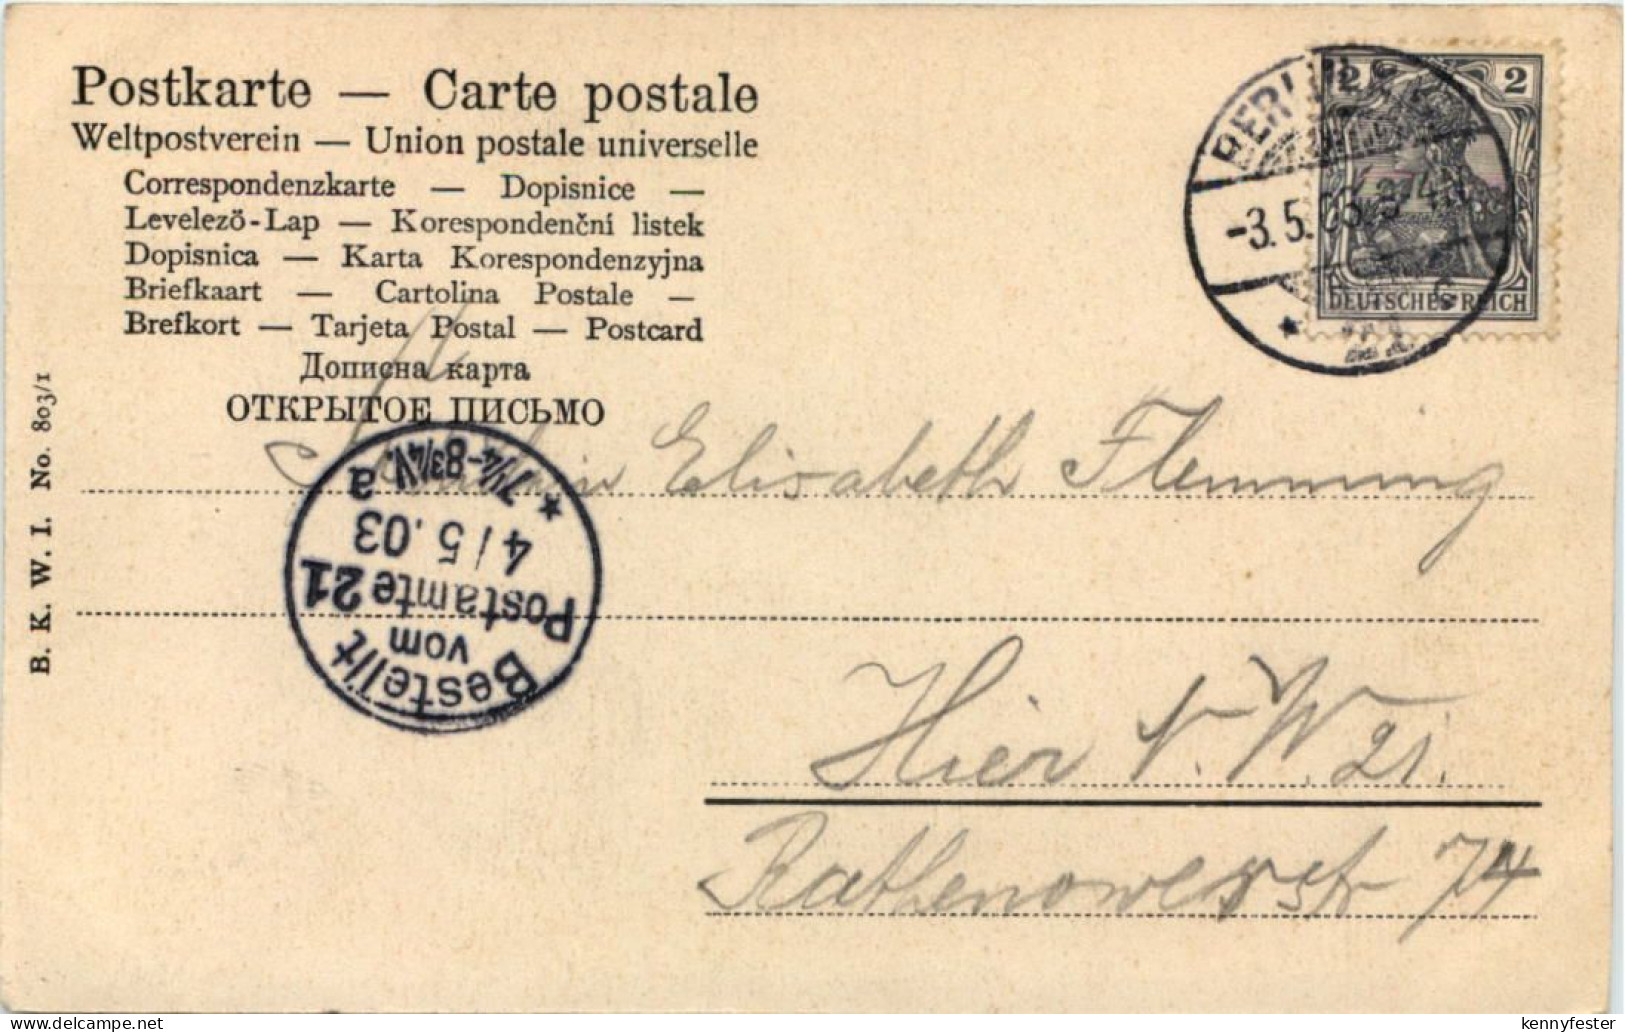 Postkarte — Carte postale
Weltpostverein — Union postale universelle
Correspondenzkarte — Dopisnice —
Levelezö-Lap — Korespondenční listek
Dopisnica — Karta Korespondenzyjna
Briefkaart — Cartolina Postale —
Brefkort — Tarjeta Postal — Postcard
Дописна карта
ОТКРЫТОЕ ПИСЬМО
B. K. W. I. No. 803/1
2 2
DEUTSCHES REICH
BERLIN
-3.5.03.
Elisabeth Flemming
Bestellt
vom
Postamte 21
4/5.03
7¼-8¾V. a
Hier N. W. 21.
Rathenowerstr 74
delcampe.net
kennyfester